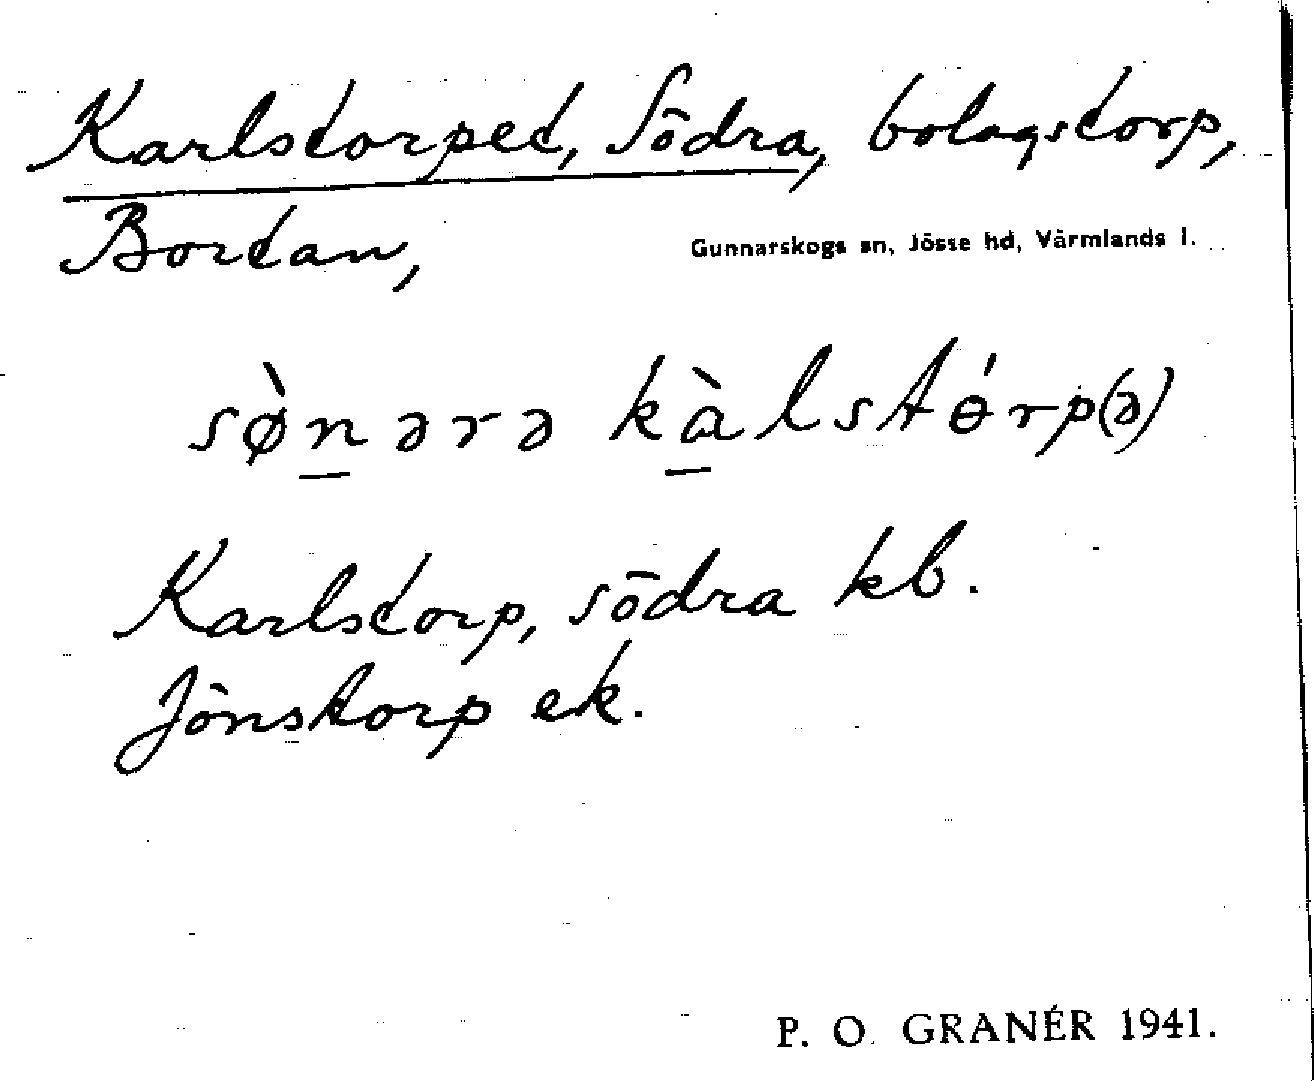 Karlstorpet, Södra, bolagstorp,
Bortan,
Gunnarskogs sn, Jösse hd, Värmlands l.
sø̀nərə kàlstɵ́rp(ə)
Karlstorp, södra kb.
Jönstorp ek.
P. O. GRANÉR 1941.